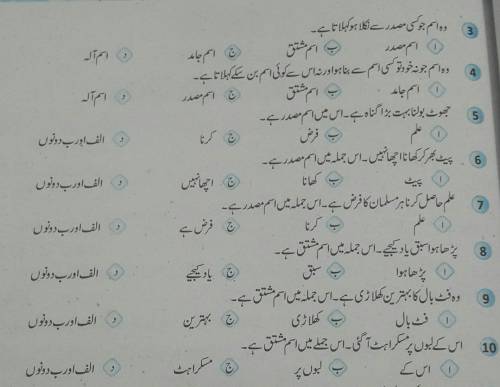 3 وہ اسم جو کسی مصدر سے نکلا ہو کہلاتا ہے۔
ا اسم مصدر ب اسم مشتق ج اسم جامد د اسم آلہ
4 وہ اسم جو نہ خود تو کسی اسم سے بنا ہو اور نہ اس سے کوئی اسم بن سکے کہلاتا ہے۔
ا اسم جامد ب اسم مشتق ج اسم مصدر د اسم آلہ
5 جھوٹ بولنا بہت بڑا گناہ ہے۔ اس میں اسم مصدر ہے۔
ا علم ب فرض ج کرنا د الف اور ب دونوں
6 پیٹ بھر کر کھانا اچھا نہیں۔ اس جملہ میں اسم مصدر ہے۔
ا پیٹ ب کھانا ج اچھا نہیں د الف اور ب دونوں
7 علم حاصل کرنا ہر مسلمان کا فرض ہے۔ اس جملہ میں اسم مصدر ہے۔
ا علم ب کرنا ج فرض ہے د الف اور ب دونوں
8 پڑھا ہوا سبق یاد کیجیے۔ اس جملہ میں اسم مشتق ہے۔
ا پڑھا ہوا ب سبق ج یاد کیجیے د الف اور ب دونوں
9 وہ فٹ بال کا بہترین کھلاڑی ہے۔ اس جملہ میں اسم مشتق ہے۔
ا فٹ بال ب کھلاڑی ج بہترین د الف اور ب دونوں
10 اس کے لبوں پر مسکراہٹ آ گئی۔ اس جملے میں اسم مشتق ہے۔
ا اس کے ب لبوں پر ج مسکراہٹ د الف اور ب دونوں